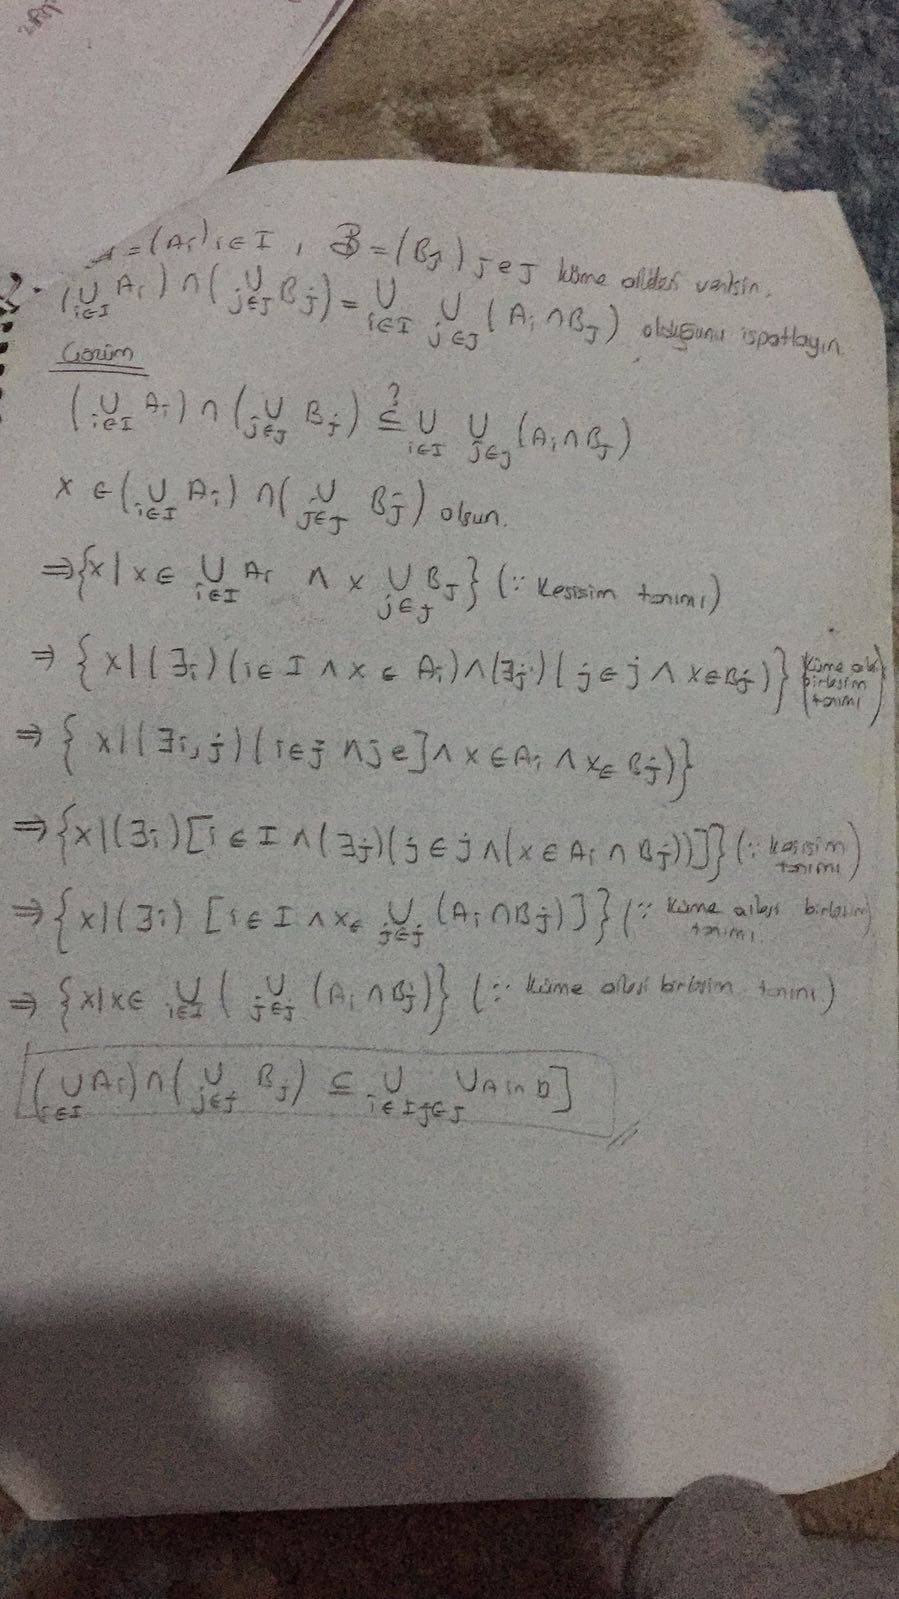 = (Ai) i∈I , B = (Bj) j∈J küme aileleri verilsin.
(∪i∈I Ai) ∩ (∪j∈J Bj) = ∪i∈I ∪j∈J (Ai ∩ Bj) olduğunu ispatlayın.
Çözüm
(∪i∈I Ai) ∩ (∪j∈J Bj) ⊆? ∪i∈I ∪j∈J (Ai ∩ Bj)
x ∈ (∪i∈I Ai) ∩ (∪j∈J Bj) olsun.
⇒ {x | x ∈ ∪i∈I Ai ∧ x ∪j∈J Bj} (∵ Kesişim tanımı)
⇒ {x | (∃i) (i ∈ I ∧ x ∈ Ai) ∧ (∃j) (j ∈ j ∧ x ∈ Bj)} (küme ailesi birleşim tanımı)
⇒ {x | (∃i, j) (i ∈ j ∧ j ∈ ] ∧ x ∈ Ai ∧ x ∈ Bj)}
⇒ {x | (∃i) [i ∈ I ∧ (∃j) (j ∈ j ∧ (x ∈ Ai ∩ Bj))]} (∵ kesişim tanımı)
⇒ {x | (∃i) [i ∈ I ∧ x ∈ ∪j∈j (Ai ∩ Bj)]} (∵ küme ailesi birleşim tanımı)
⇒ {x | x ∈ ∪i∈I ( ∪j∈j (Ai ∩ Bj)} (∵ küme ailesi birleşim tanımı)
(∪i∈I Ai) ∩ (∪j∈j Bj) ⊆ ∪i∈I ∪j∈J Ai ∩ b]